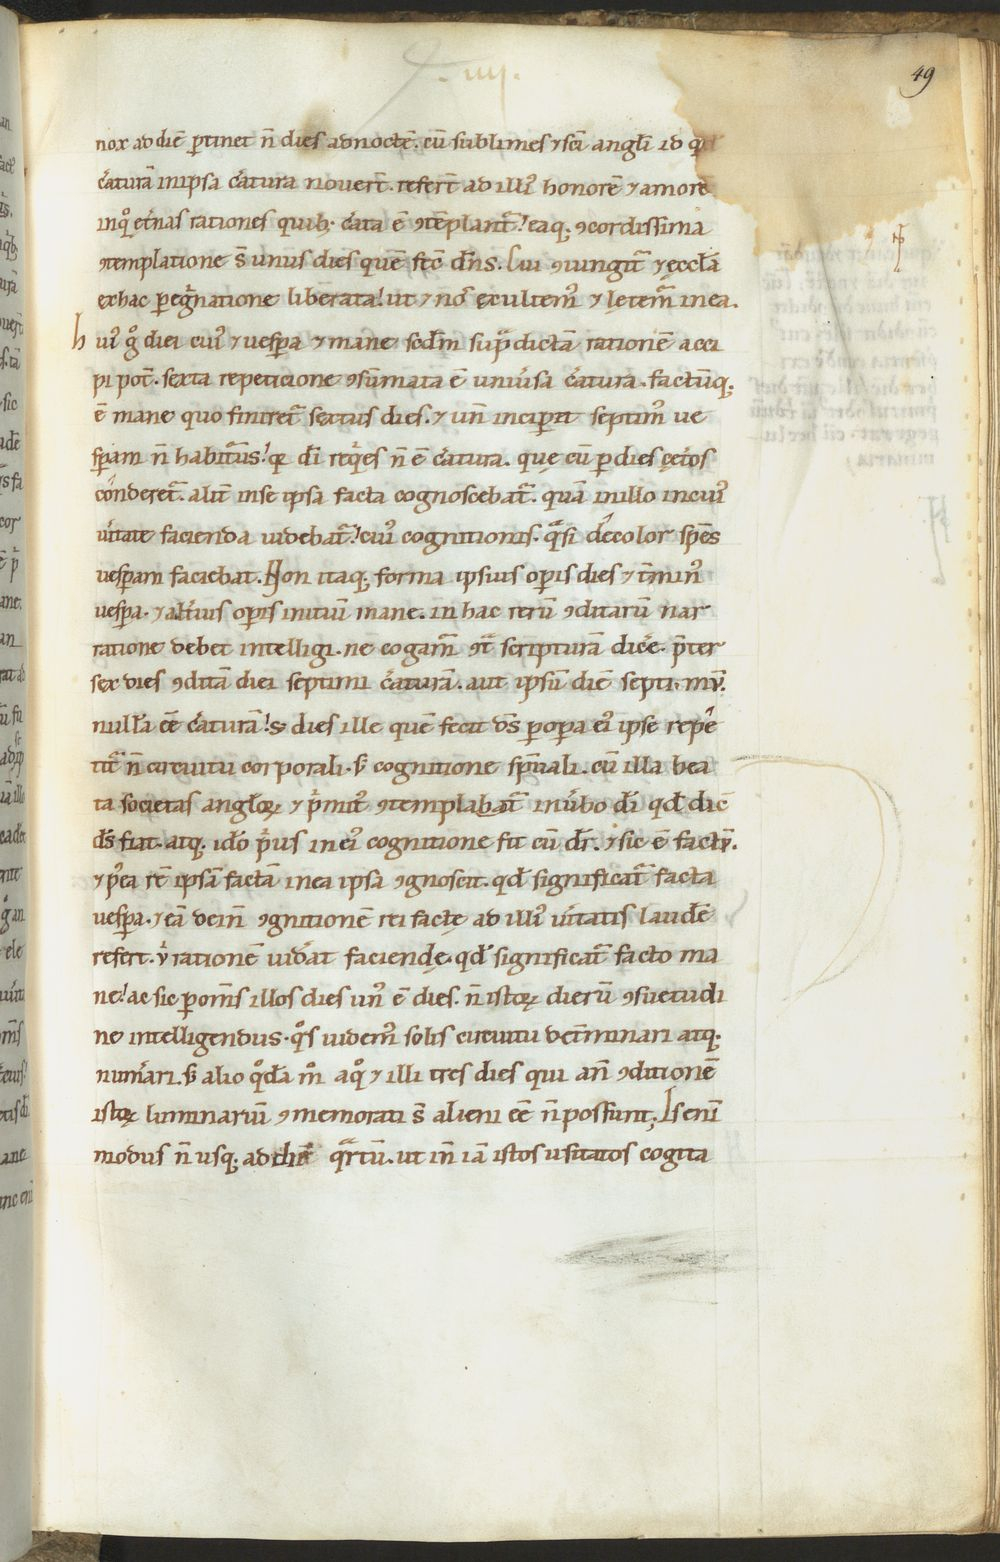 49
nox ad diē ꝑtinet n̄ dies ad noctē. cū sublimes ⁊ sc̄i angl̄i id qd̄
c̄aturā in ipsa c̄atura nouer̄t. refer̄t ad illiꝰ honorē ⁊ amorē
in qͦꝝ et̄nas rationes quibꝫ c̄ata ē ꝯtēplant᷑. eaqꝫ ꝯcordissima
ꝯtemplatione s̄ unus dies quē fec̄ dn̄s. Cui ꝯiungit᷑ ⁊ ęccl̄a
ex hac pegͥnatione liberata. ut ⁊ nos exultemꝰ ⁊ lętem᷑ in ea.
huiꝰ gͦ diei cuiꝰ ⁊ uespa ⁊ mane sc̄dm sup̄dictā rationē acci
pi pot̄. sexta repeticione ꝯsūmata ē uniūsa c̄atura. factūqꝫ
ē mane quo finiret᷑ sextus dies. ⁊ un̄ inciꝑet septimꝰ ue
spam n̄ habiturus. qꝛ dī reqͥes n̄ ē c̄atura. que cū ꝑ dies cęt̄os
conderet᷑. alit̄ in se ipsa facta cognoscebat᷑. quā in illo in cuiꝰ
ūitate facienda uidebat᷑. cuiꝰ cognitionis. qᷓsi decolor spēs
uespam faciebat. Non itaqꝫ forma ipsius oꝑis dies ⁊ t̄minꝰ
uespa. ⁊ alt̄ius oꝑis initiū mane. in hac rerū ꝯditarū nar
ratione debet intelligi. ne cogam᷑ ꝯᷓ scripturā dic̄e. p̄ter
sex dies ꝯditā diei septimi c̄aturā. aut ipsū diē septimū
nullā eē c̄aturā. sꝫ dies ille quē fecit dſ̄ ꝑ oꝑa eiꝰ ipse repe
tit᷑ n̄ circuitu corporali. sꝫ cognitione sp̄uali. cū illa bea
ta societas angl̄oꝝ ⁊ pͥmit᷑ ꝯtemplabat᷑ in ūbo dī qd̄ dic̄
ds̄ fiat. atqꝫ idō pͥus in eiꝰ cognitione fit cū dr̄. ⁊ sic ē factū.
⁊ pͦea rē ipsā factā in ea ipsa ꝯgnoscit. qd̄ significat᷑ facta
uespa. ⁊ eā dein̄ ꝯgnitionē rei factę ad illiꝰ ūitatis laudē
refert. uͥ rationē uid̄at faciendę. qd̄ significat᷑ facto ma
ne. ac sic ꝑ om̄s illos dies unꝰ ē dies. n̄ istoꝝ dierū ꝯsuetudi
ne intelligendus. qͦs uidemꝰ solis circuitu det̄minari atqꝫ
num̄ari. sꝫ alio qͦdā mͦ a qͦ ⁊ illi tres dies qui an̄ ꝯditionē
istoꝝ luminariū ꝯmemorati s̄ alieni eē n̄ possunt. Is enī
modus n̄ usqꝫ ad diē qᷓrtū. ut in̄ iā istos usitatos cogita